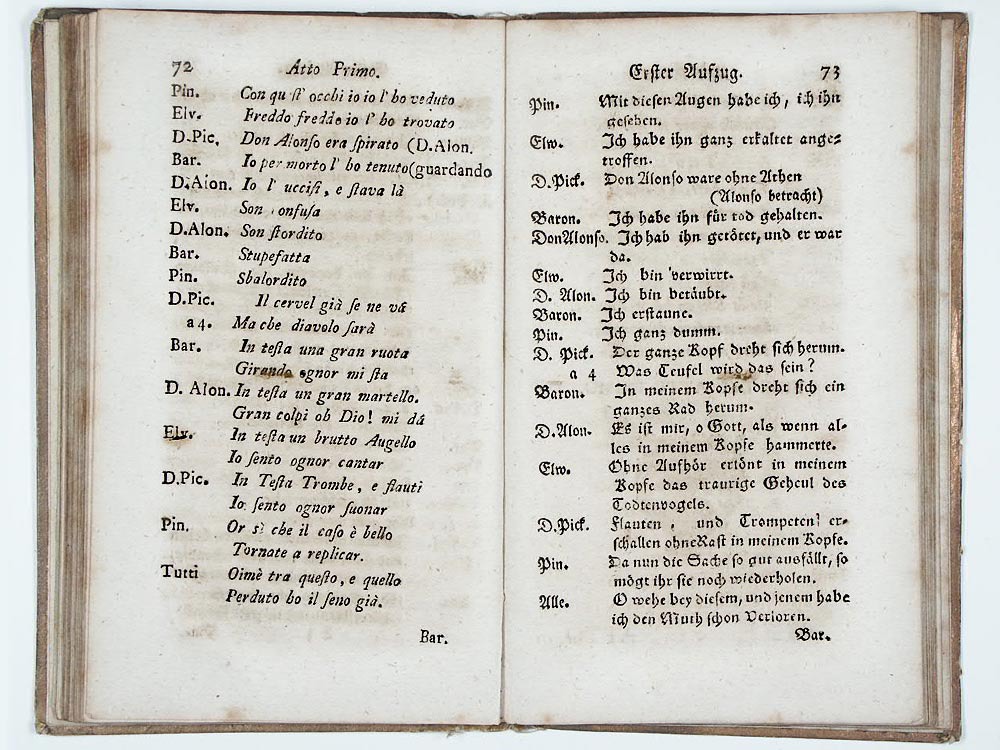 72 Atto Primo.
Pin. Con qu st' occhi io io l' ho veduto
Elv. Freddo freddo io l' ho trovato
D.Pic. Don Alonſo era ſpirato (D.Alon.
Bar. Io per morto l' ho tenuto(guardando
D.Alon. Io l' ucciſi, e ſtava là
Elv. Son onfuſa
D.Alon. Son ſtordito
Bar. Stupefatta
Pin. Sbalordito
D.Pic. Il cervel già ſe ne vá
a 4. Ma che diavolo ſarà
Bar. In teſta una gran ruota
Girando ognor mi ſta
D. Alon. In teſta un gran martello.
Gran colpi oh Dio! mi dá
Elv. In teſta un brutto Augello
Io ſento ognor cantar
D.Pic. In Teſta Trombe, e flauti
Io ſento ognor ſuonar
Pin. Or sì che il caſo è bello
Tornate a replicar.
Tutti Oimè tra queſto, e quello
Perduto ho il ſeno già.
Bar.
Erſter Aufzug. 73
Pin. Mit dieſen Augen habe ich, ich ihn
geſehen.
Elw. Ich habe ihn ganz erkaltet ange-
troffen.
D.Pick. Don Alonſo ware ohne Athen
(Alonſo betracht)
Baron. Ich habe ihn für tod gehalten.
DonAlonſo. Ich hab ihn getötet, und er war
da.
Elw. Ich bin verwirrt.
D. Alon. Ich bin betäubt.
Baron. Ich erſtaune.
Pin. Ich ganz dumm.
D. Pick. Der ganze Kopf dreht ſich herum.
a 4 Was Teufel wird das ſein?
Baron. In meinem Kopfe dreht ſich ein
ganzes Rad herum.
D.Alon. Es iſt mir, o Gott, als wenn al-
les in meinem Kopfe hammerte.
Elw. Ohne Aufhör ertönt in meinem
Kopfe das traurige Geheul des
Todtenvogels.
D.Pick. Flauten, und Trompeten er-
ſchallen ohne Raſt in meinem Kopfe.
Pin. Da nun die Sache ſo gut ausfällt, ſo
mögt ihr ſie noch wiederholen.
Alle. O wehe bey dieſem, und jenem habe
ich den Muth ſchon verloren.
Bar.